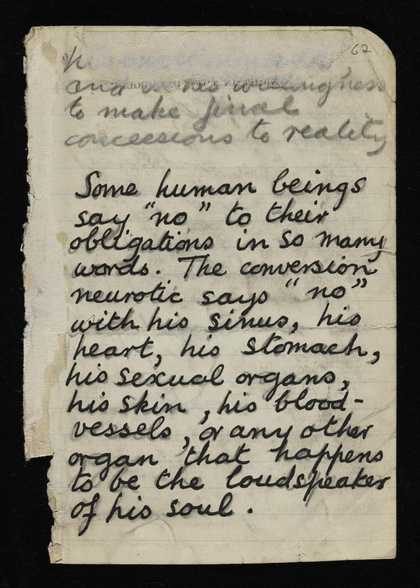 62
and                willingness
to make final
concessions to reality
Some human beings
say "no" to their
obligations in so many
words. The conversion
neurotic says "no"
with his sinus, his
heart, his stomach,
his sexual organs,
his skin, his blood-
vessels, or any other
organ that happens
to be the loudspeaker
of his soul.